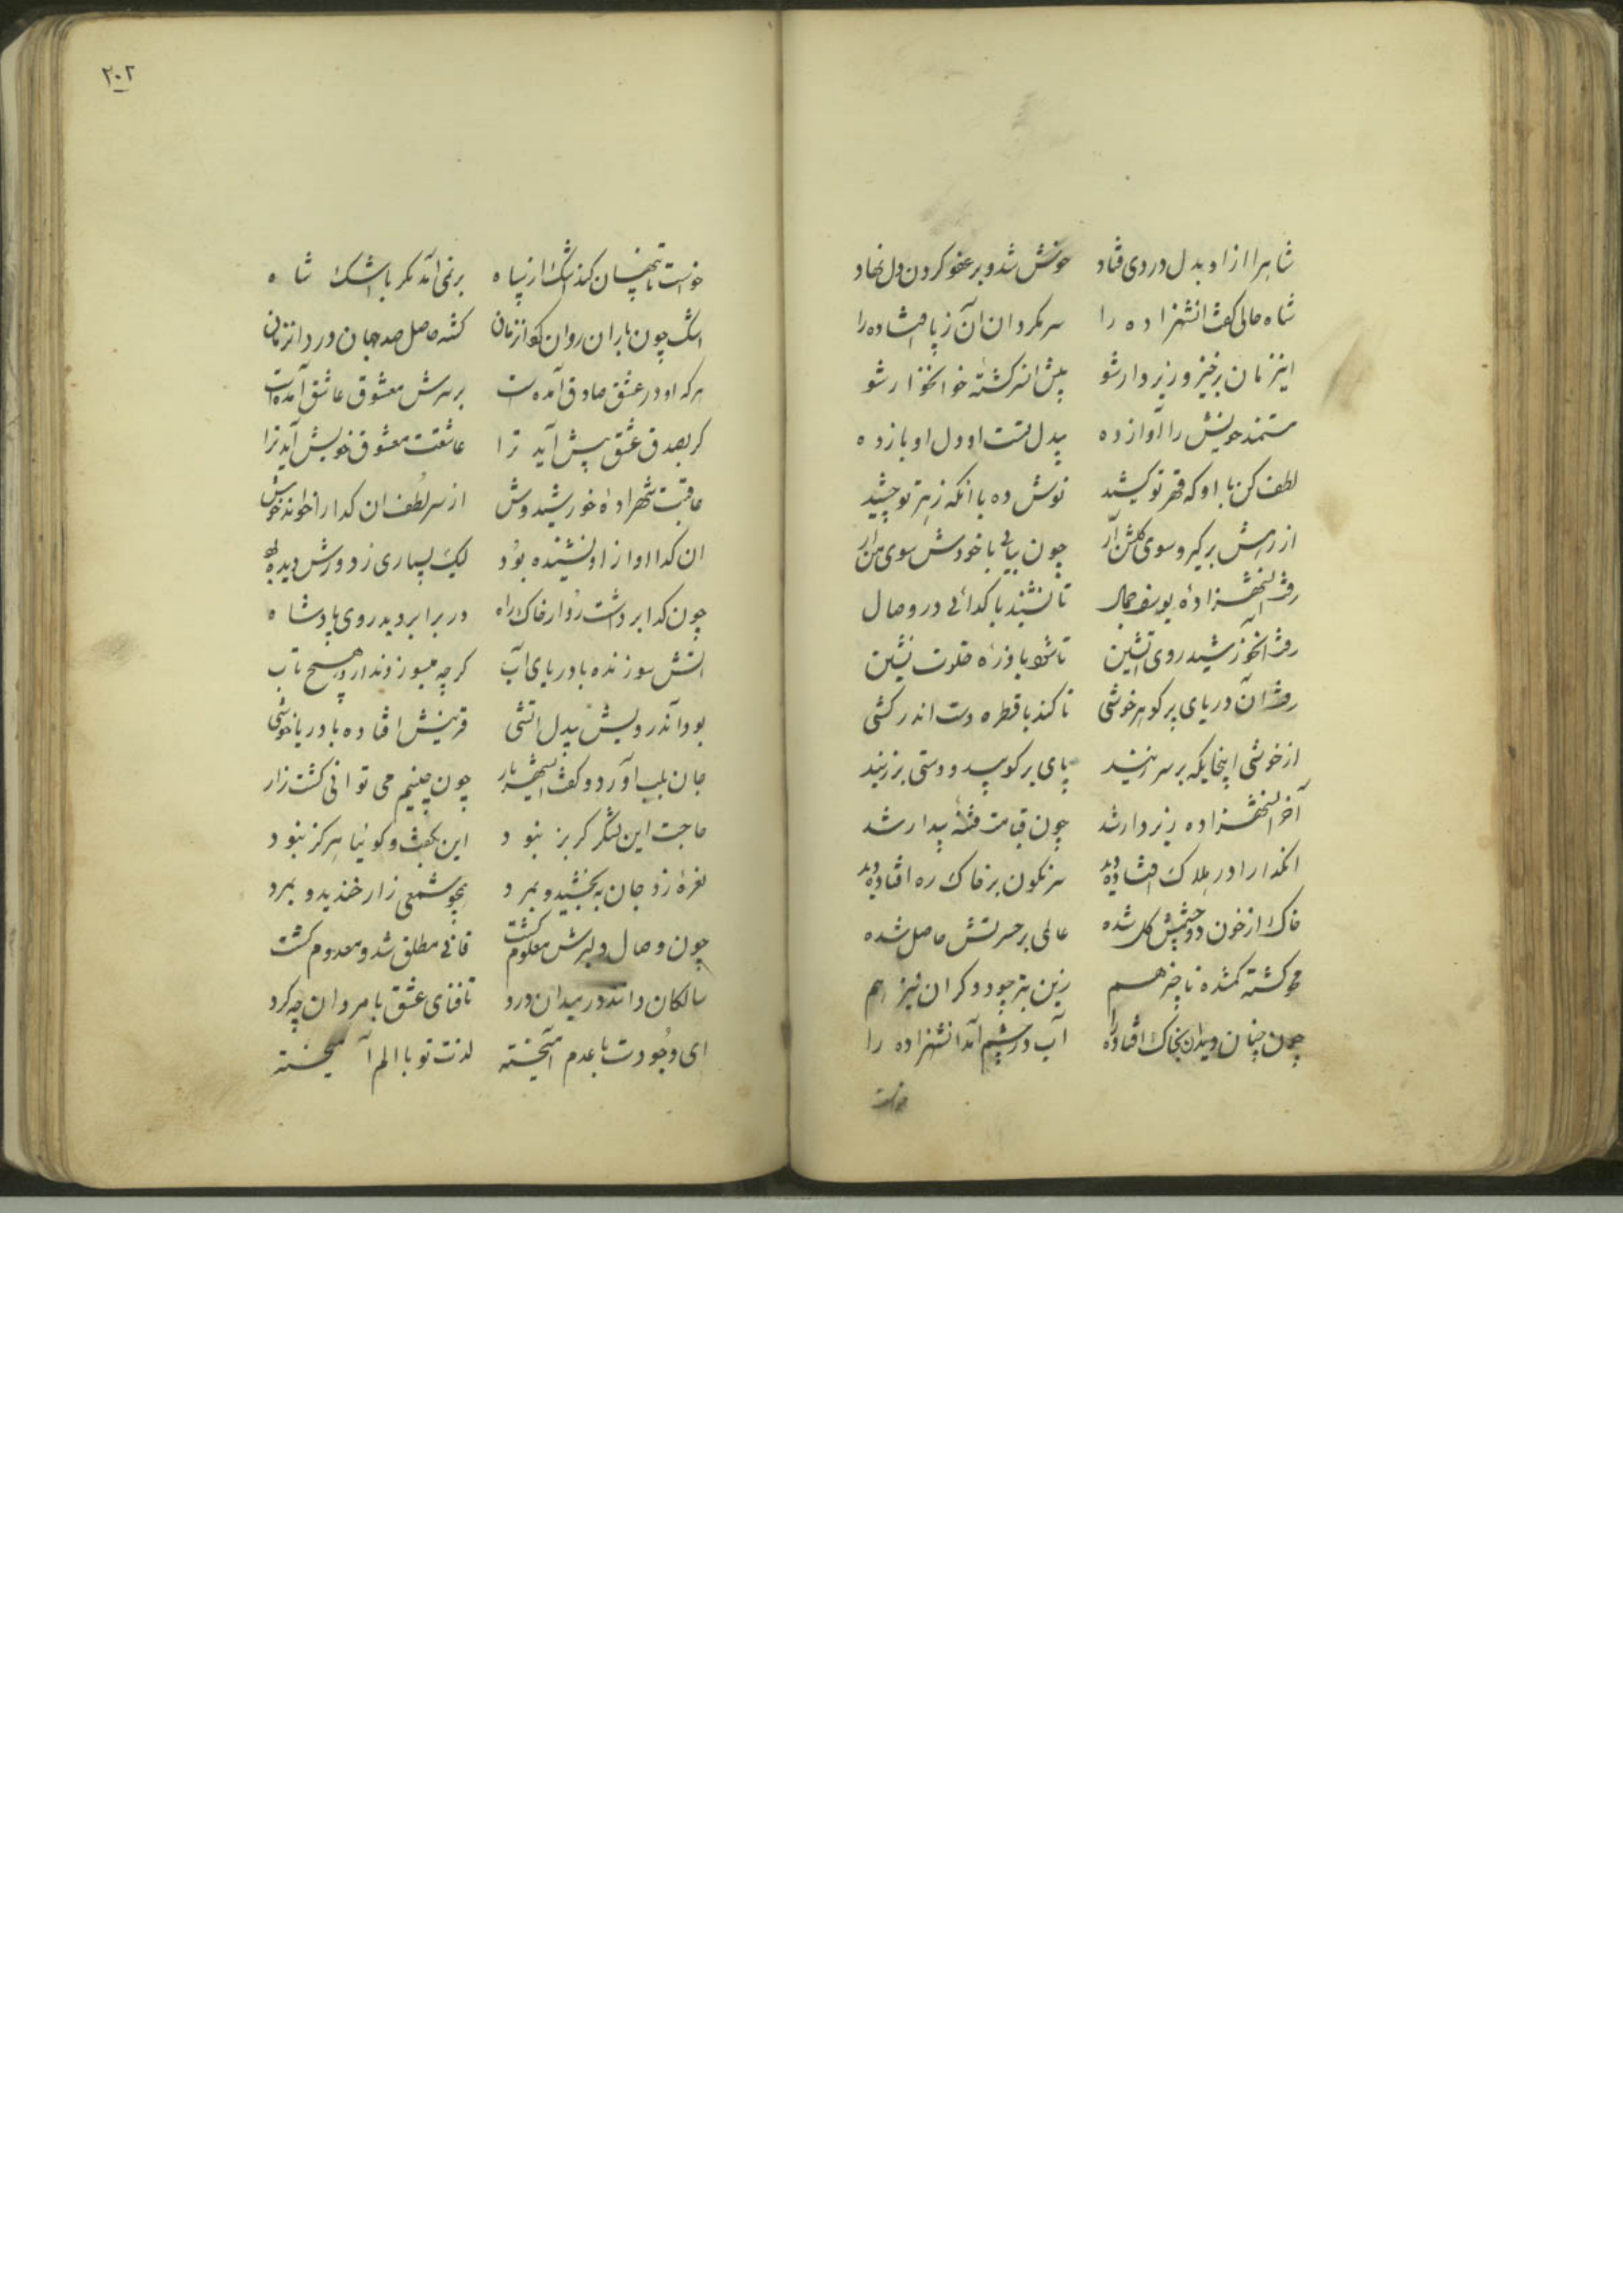 شاهرا از او بدل دردی فتاد خوش شد و بر عفو کردن دل نهاد
شاه حالی گفت انشهزاده را سر مگردان ان ز پا افتاده را
اینزمان برخیز و زیر دار شو پیش انسرکشته خوانخوار شو
مستمند خویش را آواز ده بیدل تست او دل او باز ده
لطف کن با او که قهر تو کشید نوش ده با انکه زهر تو چشید
از رهش برگیر و سوی گلشن آر چون بیایی با خودش سوی من آر
رفت انشهزادهٔ یوسف جمال تا نشیند با گدائی در وصال
رفت انخورشید روی اتشین تا شود با ذرهٔ خلوت نشین
رفت آن دریای پر گوهر خوشی تا کند با قطره دست اندر کشی
از خوشی اینجایکه بر سر زنید پای بر کوبید و دستی بر زنید
آخر انشهزاده زیر دار شد چون قیامت فتنهٔ بیدار شد
انگدا را در هلاک افتاده دید سرنگون بر خاک ره افتاده دید
خاک از خون دو چشمش گل شده عالمی بر حسرتش حاصل شده
محو گشته گمشده ناچیز هم زین بتر چبود دگر ان نیز هم
چون چنان دید ان بخاک افتاده را آب در چشم آمد انشهزاده را
خواست
۲۰۲
خواست تا پنهان کند اشک از سپاه بر نمی آمد مگر با اشک شاه
اشک چون باران روان کرد آنزمان گشته حاصل صد جهان درد آنزمان
هرکه او در عشق صادق آمدست بر سرش معشوق عاشق آمدست
گر بصدق عشق پیش آید ترا عاشقت معشوق خویش آید ترا
عاقبت شهزادهٔ خورشیدوش از سر لطف ان گدا را خواند خوش
ان گدا اواز او نشنیده بود لیک بسیاری ز دورش دیده بود
چون گدا برداشت رو از خاک راه در برابر دید روی پادشاه
اتش سوزنده با دریای آب گرچه میسوزد ندارد هیچ تاب
بود آندرویش بیدل اتشی قربتش افتاده با دریا خوشی
جان بلب آورد و گفت ایشهریار چون چنینم می توانی کشت زار
حاجت این لشکر گربز نبود این بگفت و گوئیا هرگز نبود
نعرهٔ زد جان ببخشید و بمرد همچو شمعی زار خندید و بمرد
چون وصال دلبرش معلوم گشت فانی مطلق شد و معدوم گشت
سالکان دانند در میدان درد تا فنای عشق با مردان چه کرد
ای وجودت با عدم آمیخته لذت تو با الم آمیخته